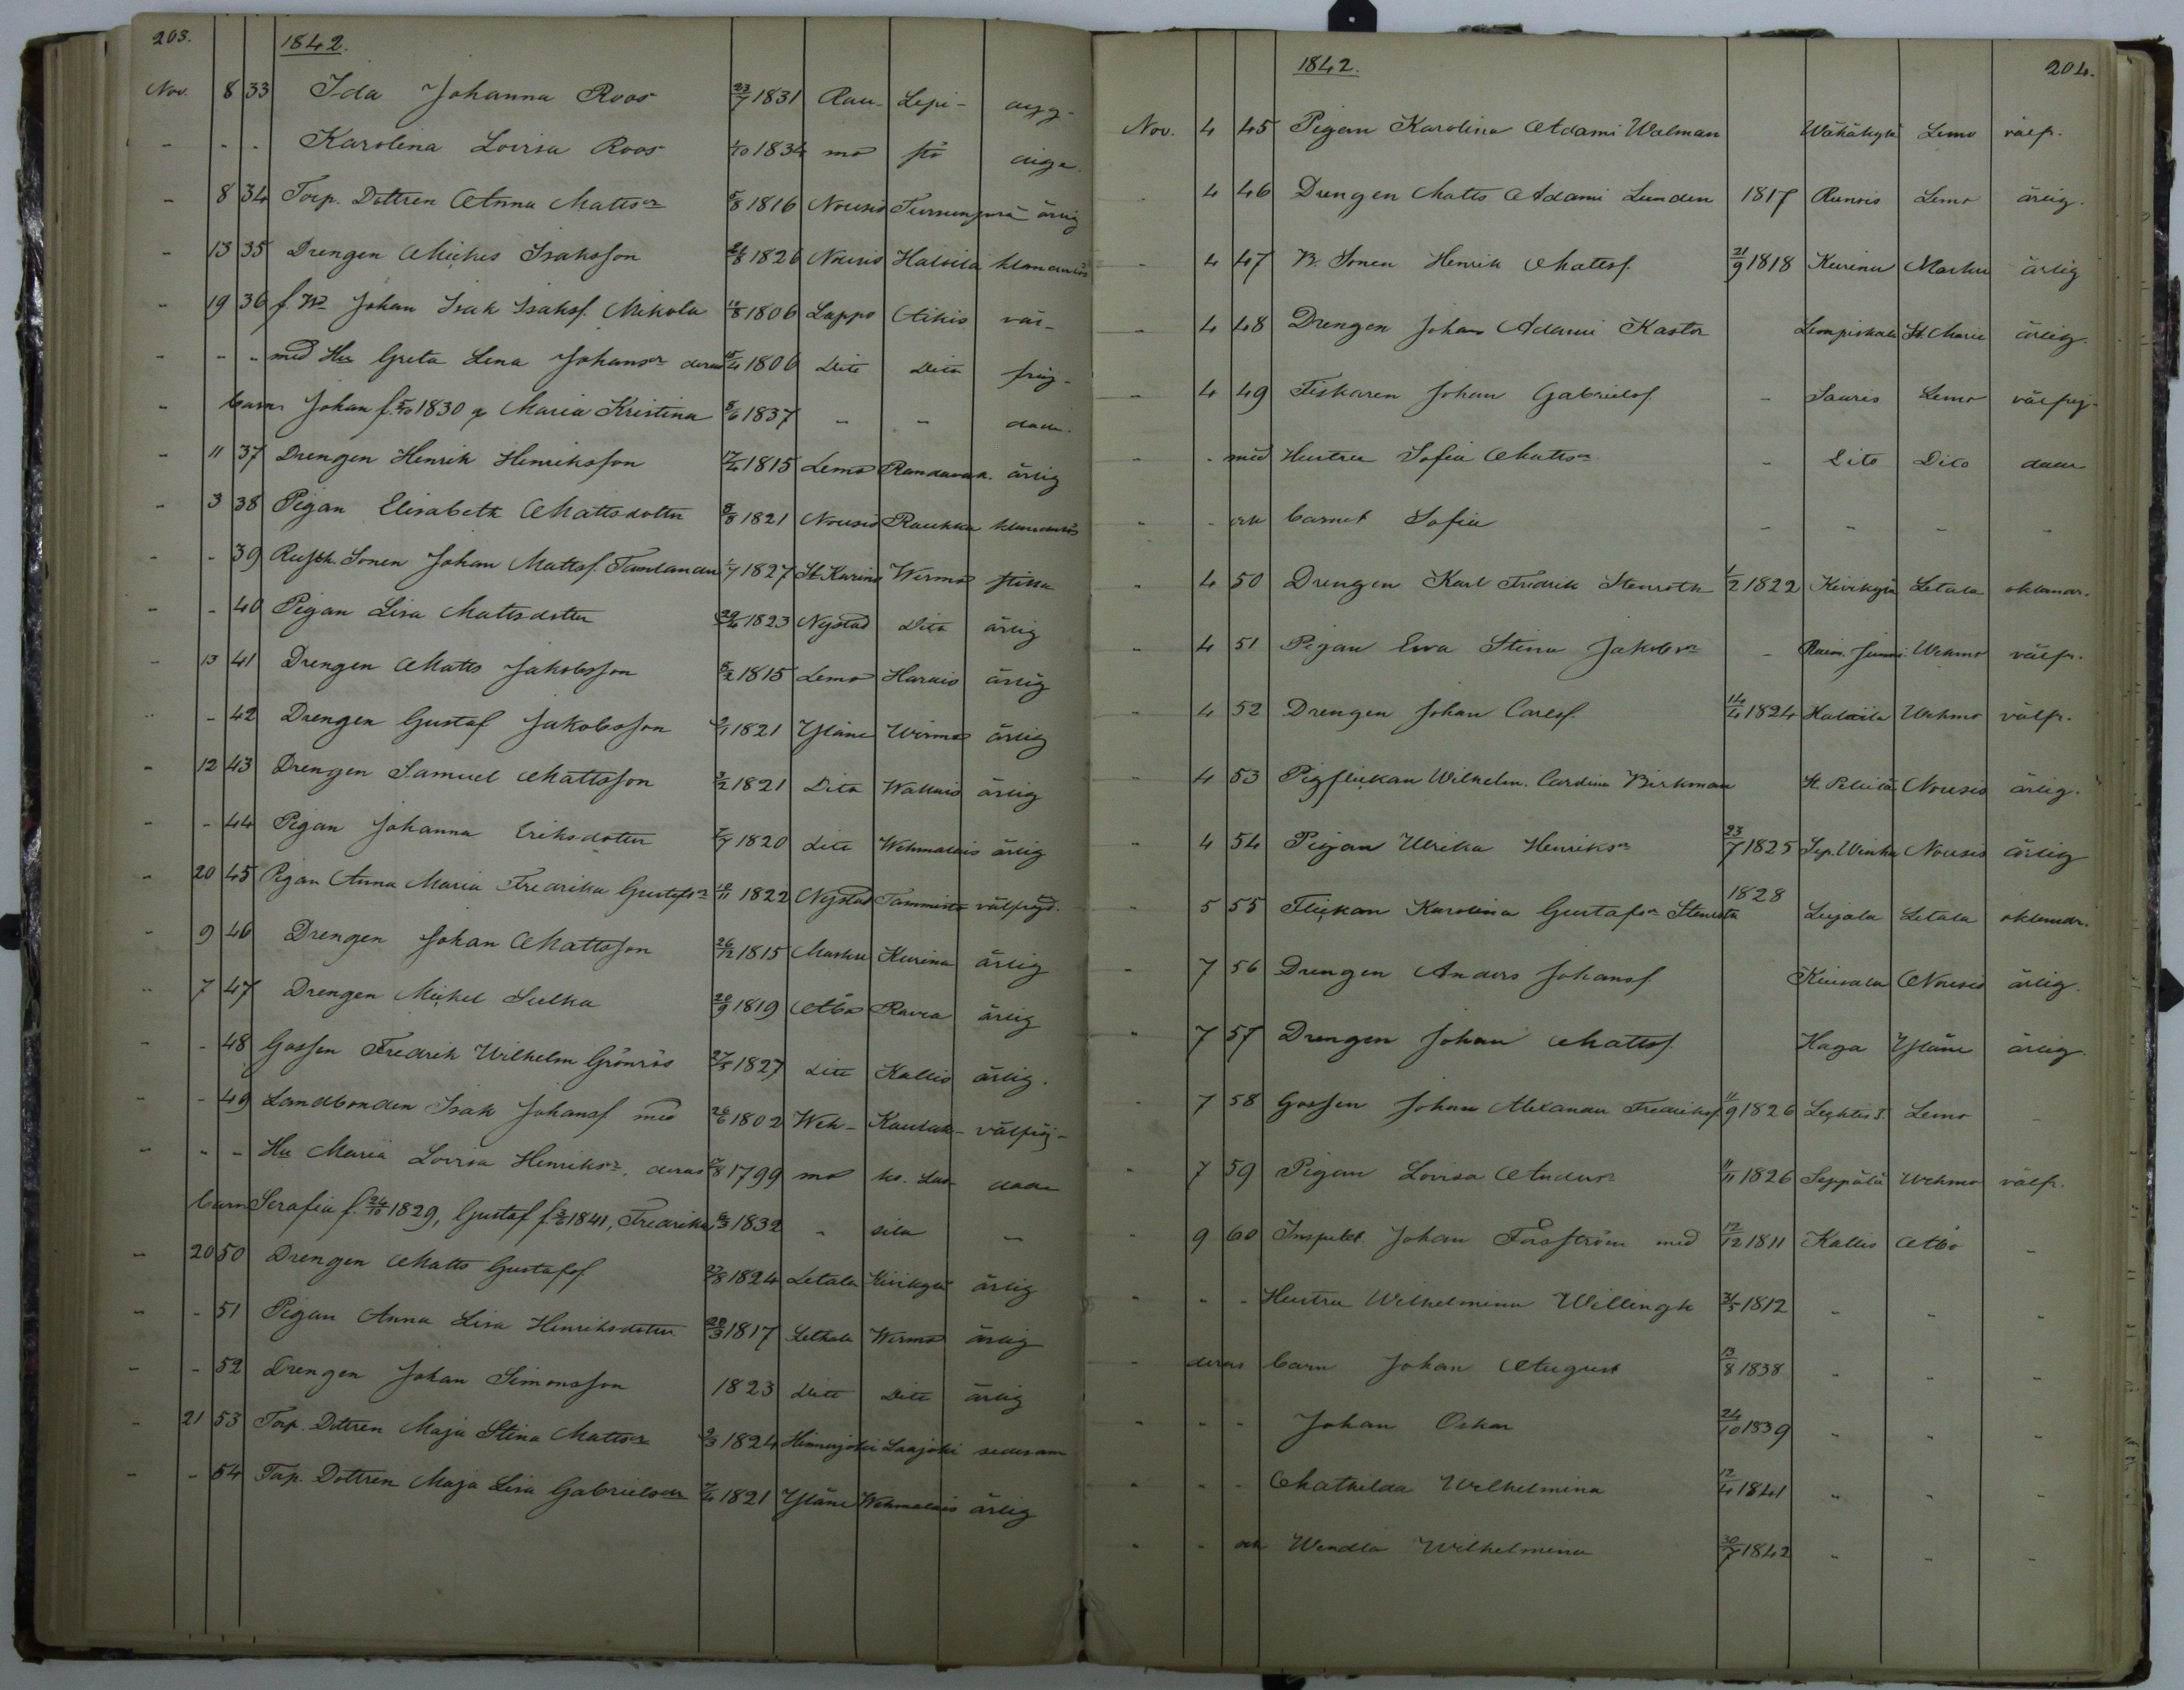 203.
1842.
Nov. 8 33 Ida Johanna Roos 23/7 1831 Rau- Lepi-
- - - Karolina Lovisa Roos 1/10 1834 mo stö
- 8 34 Torp. Dottren Anna Mattsdr 5/8 1816 Nousis ärlig
- 13 35 Drengen Mickel Isaksson 24/8 1826 Nousis Halvila klanderlös
- 19 36 f. Johan Isak Isaksf. Mikola 1806 Lappo Aikis väl-
- - - med Hu Greta Lena Johansdr deras 1806 Dito Dito frejd-
- barn Johan f. 1830 o Maria Kristina 5/6 1837 - - dade.
- 11 37 Drengen Henrik Henriksson 17/4 1815 Lemo ärlig
- 3 38 Pigan Elisabeth Mattsdotter 8/8 1821 Nousis Raukka klanderlös
- - 39 Rusth. Sonen Johan Mattsf. 1/7 1827 St Karins Wirmo
- - 40 Pigan Lisa Mattsdotter 29/4 1823 Nystad Dito ärlig
- 13 41 Drengen Matts Jakobsson 5/2 1815 Lemo Harais ärlig
- - 42 Drengen Gustaf Jakobsson 1821 Yläne Wirmo ärlig
- 12 43 Drengen Samuel Mattsson 3/2 1821 Dito Wallais ärlig
- - 44 Pigan Johanna Eriksdotter 7/7 1820 Dito Wehmalais ärlig
- 20 45 Pigan Anna Maria Fredrika Gustafsdr 18/11 1822 Nystad Tammisto välfrejd.
- 9 46 Drengen Johan Mattsson 26/12 1815 Masku Keurina ärlig
- 7 47 Drengen Mickel Sulka 20/9 1819 Åbo Ravea ärlig
- - 48 Gossen Fredrik Wilhelm Grönros 27/5 1827 Dito Kallis ärlig.
- - 49 Landbonden Isak Johansf med 26/6 1802 Weh- välfrej-
- - - Hu Maria Lovisa Henriksdr, deras 1799 mo dade
barn Serafia f. 24/10 1829, Gustaf f. 1841, Fredrika 1832 - sila -
- 20 50 Drengen Matts Gustafsf 27/8 1824 Letala Kivikylä ärlig
- - 51 Pigan Anna Lisa Henriksdotter 20/3 1817 Letala Wirmo ärlig
- - 52 Drengen Johan Simonsson 1823 Dito Dito ärlig
- 21 53 Torp. Dottren Maja Stina Mattsdr 9/3 1824 Hinnerjoki Laajoki sedesam
- - 54 Torp. Dottren Maja Lisa Gabrielsdr 7/4 1821 Yläne Wehmalais ärlig
1842.
204.
Nov. 4 45 Pigan Karolina Adami Walman Wähäkylä Lemo välfr.
- 4 46 Drengen Matts Adami Lunden 1817 Runois Lemo ärlig.
- 4 47 B. Sonen Henrik Mattsf. 21/9 1818 Keurina Masku ärlig
- 4 48 Drengen Johan Adami Kastor St. Marie ärlig.
- 4 49 Fiskaren Johan Gabrielsf - Sauris Lemo välfrej-
- - med Hustru Sofia Mattsdr - Dito Dito dade
- - och barnet Sofia - - - -
- 4 50 Drengen Karl Fredrik Stenroth 1/2 1822 Kivikylä Letala oklandr.
- 4 51 Pigan Ewa Stina Jakobsdr - Wehmo välfr.
- 4 52 Drengen Johan Carlsf. 14/4 1824 Halaila Wehmo välfr.
- 4 53 Pigflickan Wilhelm. Carolina Birkman Nousis ärlig.
- 4 54 Pigan Ulrika Henriksdr 23/7 1825 Nousis ärlig
- 5 55 Flickan Karolina Gustafsdr Stenroth 1828 Leijala Letala oklandr.
- 7 56 Drengen Anders Johansf. Keurala Nousis ärlig.
- 7 57 Drengen Johan Mattsf. Haga Yläne ärlig
- 7 58 Gossen Johan Alexander Fredriksf 11/9 1826 Lemo -
- 7 59 Pigan Lovisa Andersdr 11/11 1826 Seppälä Wehmo välfr.
- 9 60 Inspekt. Johan Forsström med 12/12 1811 Kallis Åbo -
- - - Hustru Wilhelmina Willingk 31/5 1812 - - -
- deras barn Johan August 13/8 1838 - - -
- - - Johan Oskar 24/10 1839 - - -
- - - Mathilda Wilhelmina 12/4 1841 - - -
- - och Wendla Wilhelmina 30/7 1842 - - -